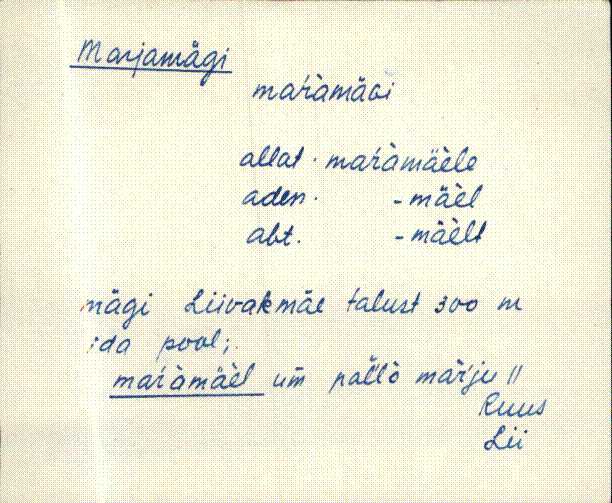 Marjamägi
maŕàmäGi
allat. maŕàmäèle
aden. -mäèl
abt. -mäèlt
mägi Liivakmäe talust 300 m
ida pool;
maŕàmäèl um̄ pal̀l̀ò maŕju ||
Ruus
Lii